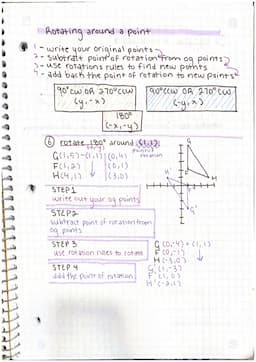 Rotating around a point
1 - write your original points
2 - subtract point of rotation from og points
3 - use rotations rules to find new points
4 - add back the point of rotation to new points
90° CW OR 270° CCW
(y, -x)
90° CCW OR 270° CW
(-y, x)
180°
(-x, -y)
⑥ rotate 180° around (1,1)
point of rotation
G(1,5) - (1,1) (0,4)
F(1,2) (0,1)
H(4,1) (3,0)
STEP 1
write out your og points
STEP 2
subtract point of rotation from
og points
STEP 3
use rotation rules to rotate
STEP 4
add the point of rotation
G (0,-4) + (1,1)
F (0,-1)
H (-3,0)
G'(1,-3)
F'(1,0)
H'(-2,1)
G
F
H
H'
G'